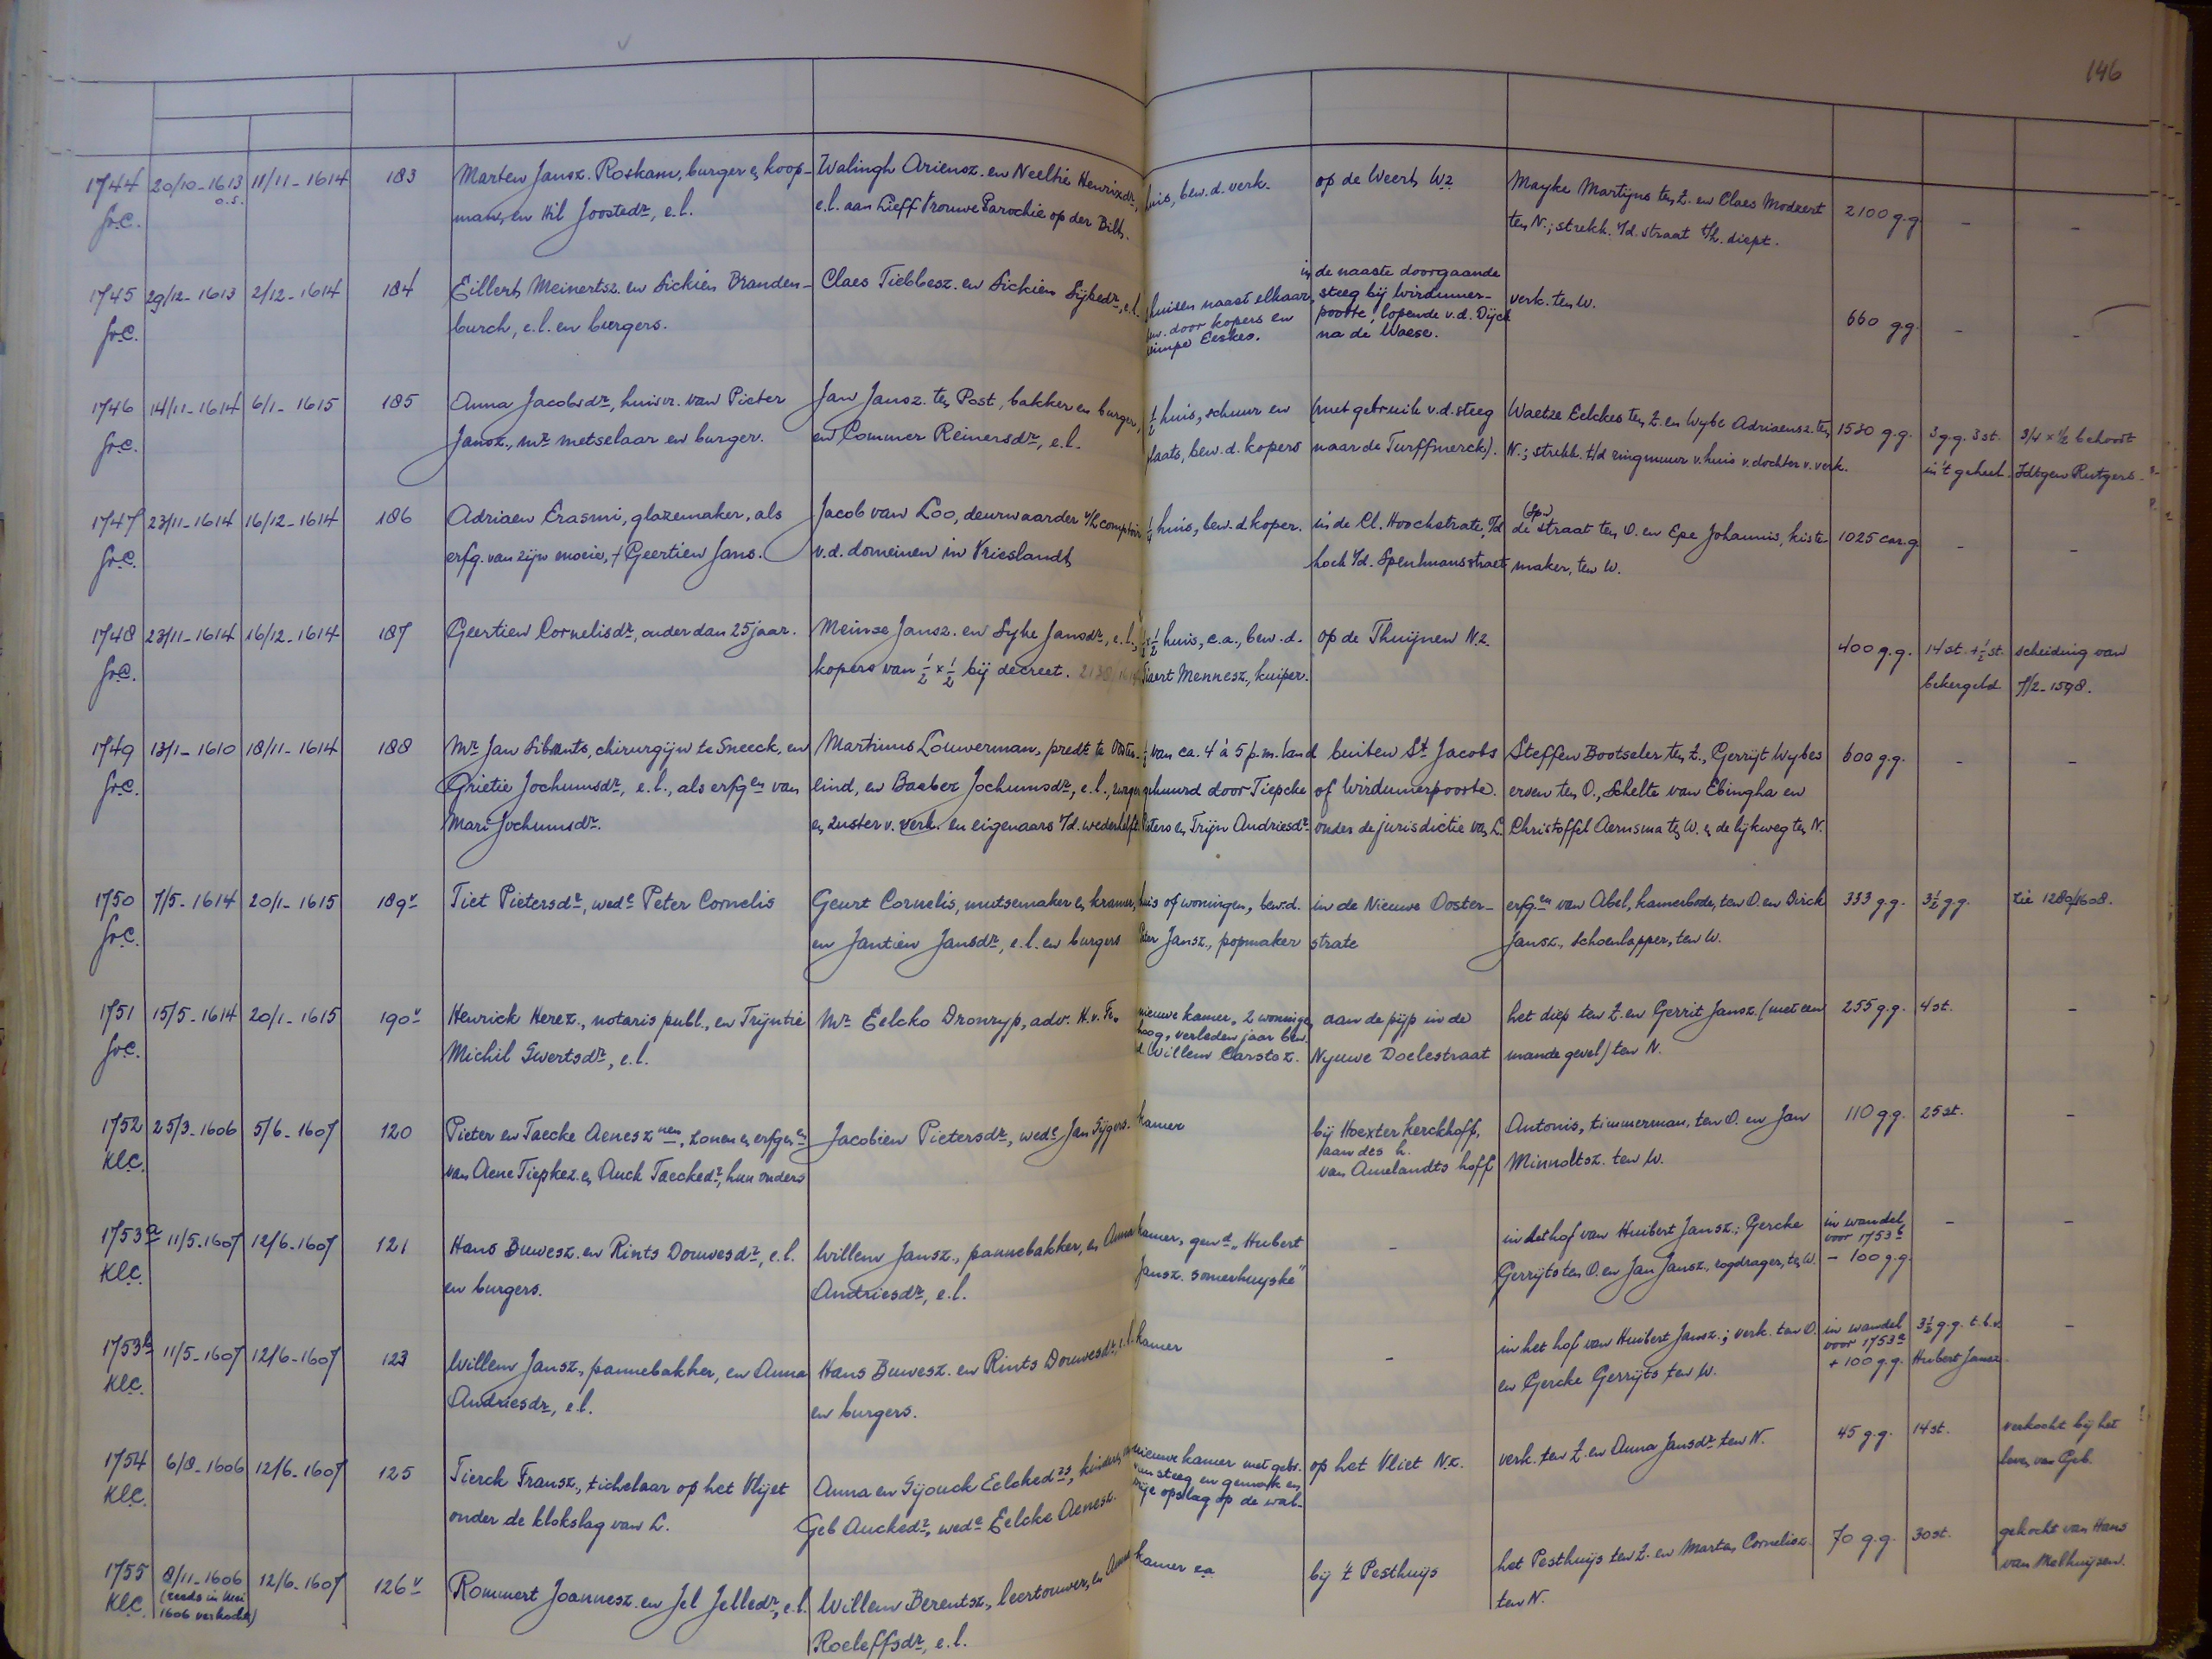 146
1744 20/10-1613 11/11-1614 183 Marten Jansz. Roskam, burger en koop- Walingh Ariensz. en Neeltie Henrixdr, huis, bew. d. verk. op de Weert Wz Mayke Martijns ten Z. en Claes Modeert 2100 g.g. - -
Gr.C. o.s. man, en Hil Joostedr, e.l. e.l. aan Lieff Vrouwe Parochie op der Bilt. ten N.; strekk. v/d. straat t/h. diept.
1745 29/12-1613 2/12-1614 184 Eillert Meinertsz. en Sickien Branden- Claes Tiebbesz. en Sickien Sijbedr, e.l. huisen naast elkaar, in de naaste doorgaande verk. ten W. 660 gg. - -
Gr.C. burch, e.l. en burgers. bew. door kopers en Eeskes. steeg bij Wirdumer-
poorte, lopende v.d. Dijck
na de Waese.
1746 14/11-1614 6/1-1615 185 Anna Jacobsdr, huisvr. van Pieter Jan Jansz. ten Post, bakker en burger, ½ huis, schuur en (met gebruik v.d. steeg Waetze Eelckes ten Z. en Wybe Adriaensz. ten 1530 g.g. 3 g.g. 3 st. 3/4 x 1/2 behoort
Gr.C. Jansz., mr metselaar en burger. en Commer Reinersdr, e.l. plaats, bew. d. kopers naar de Turffmerck). N.; strekk. t/d ringmuur v. huis v. dochter v. verk. in 't geheel. Idtgen Rutgers.
1747 23/11-1614 16/12-1614 186 Adriaen Erasmi, glazemaker, als Jacob van Loo, deurwaarder v/h comptoir huis, bew. d koper. in de Cl. Hoochstrate, (Sp.) de straat ten O. en Epe Johannis, kiste- 1025 car.g - -
Gr.C. erfg. van zijn moeie, † Geertien Jans. v.d. domeinen in Vrieslandt hoek v/d. Spenlmansstraet maker, ten W.
1748 23/11-1614 16/12-1614 187 Geertien Cornelisdr, ouder dan 25 jaar. Meinse Jansz. en Syke Jansdr, e.l., ½ huis, c.a., bew. d. op de Thuijnen N.z. 400 g.g. 14 st. + ½ st. scheiding van
Gr.C. kopers van ½ x ½ bij decreet. Mennesz., kuiper. bekergeld 7/2-1598.
1749 13/1-1610 18/11-1614 188 Mr Jan Sibrants, chirurgijn te Sneeck, en Martinus Louwerman, predt te Ooster- van ca. 4 à 5 p.m. land buiten St Jacobs Steffen Bootseler ten Z., Gerrijt Wybes 600 g.g. - -
Gr.C. Grietie Jochumsdr, e.l., als erfgen van eind, en Baeber Jochumsdr, e.l., gehuurd door Tiepcke of Wirdumerpoorte. erven ten O., Schelte van Ebingha en
Mari Jochumsdr. en zuster v. verk. en eigenaars v/d. wederhelft Pieters en Trijn Andriesdr onder de jurisdictie van L. Christoffel Aernsma ten W. en de lijkweg ten N.
1750 7/5-1614 20/1-1615 189v Tiet Pietersdr, wede Peter Cornelis Geurt Cornelis, mutsemaker en kramer, huis of woningen, bew. d. in de Nieuwe Ooster- erfgen van Abel, kamerbode, ten O. en Dirck 333 g.g. 3½ g.g. zie 1280/1608.
Gr.C. en Jantien Jansdr, e.l. en burgers Peter Jansz., popmaker strate Jansz., schoenlapper, ten W.
1751 15/5-1614 20/1-1615 190v Henrick Herez., notaris publ., en Trijntie Mr Eelcko Dronryp, adv. H.v. Fr. nieuwe kamer, 2 woningen aan de pijp in de het diep ten Z. en Gerrit Jansz. (met een 255 g.g. 4 st. -
Gr.C. Michil Gwertsdr, e.l. hoog, verleden jaar bew. d. Willem Carstsz. Nyuwe Doelestraat mande gevel) ten N.
1752 25/3-1606 5/6-1607 120 Pieter en Taecke Aenesz nen, zonen en erfgen Jacobien Pietersdr, wede Jan Sijgers. kamer bij Hoexter kerckhoff, Antonis, timmerman, ten O. en Jan 110 g.g. 25 st. -
Kl.C. van Aene Tiepkez. en Auck Taeckedr, hun ouders aan des h.
van Amelandts hoff Minnoltsz. ten W.
1753a 11/5-1607 12/6-1607 121 Hans Buwesz. en Rints Douwesdr, e.l. Willem Jansz., pannebakker, en Anna kamer, gend „Hubert - in det hof van Huibert Jansz.; Gercke in wandel - -
Kl.C. en burgers. Andriesdr, e.l. Jansz. somerhuyske" Gerrijts ten O. en Jan Jansz., zogdrager, ten W. voor 1753b
- 100 g.g.
1753b 11/5-1607 12/6-1607 123 Willem Jansz., pannebakker, en Anna Hans Buwesz. en Rints Douwesdr, e.l. kamer - in het hof van Huibert Jansz.; verk. ten O. in wandel 3½ g.g. t.b.v. -
Kl.C. Andriesdr, e.l. en burgers. en Gercke Gerrijts ten W. voor 1753a
+ 100 g.g. Hubert Jansz.
1754 6/8-1606 12/6-1607 125 Tierck Fransz., tichelaar op het Vlijet Anna en Gijouck Eelckedrs, kinderen van nieuwe kamer met gebr. op het Vliet N.z. verk. ten Z. en Anna Jansdr ten N. 45 g.g. 14 st. verkocht bij het
Kl.C. onder de klokslag van L. Geb Auckedr, wede Eelcke Aenesz. van steeg en gemak en vrije opslag op de wal. leven van Geb.
1755 8/11-1606 12/6-1607 126v Rommert Joannesz. en Jel Jelledr, e.l. Willem Berentsz., leertouwer, en Anna kamer ca bij 't Pesthuijs het Pesthuijs ten Z. en Marten Cornelisz. 70 g.g. 30 st. gekocht van Hans
Kl.C. (reeds in Mei
1606 verkocht) Roeleffsdr, e.l. ten N. van Melhuijsen.